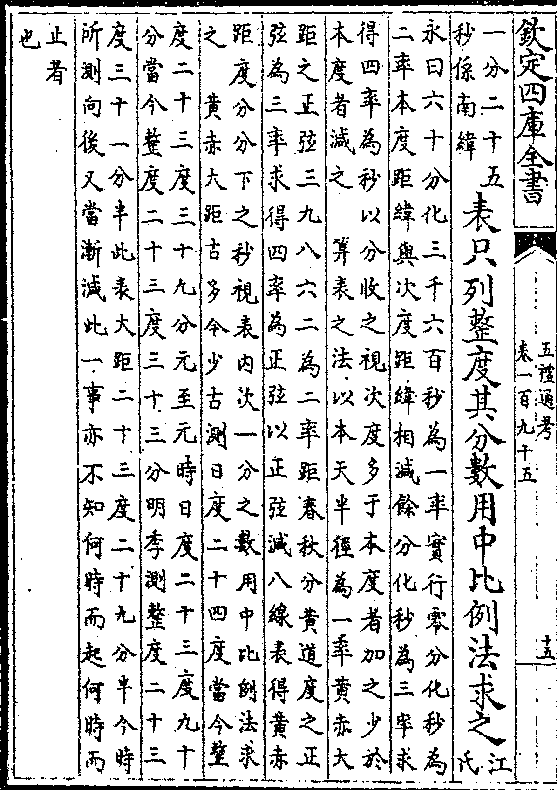 欽定四庫全書
五禮通考
卷一百九十五
十五
一分二十五
秒係南緯
表只列整度其分數用中比例法求之
江
氏
永曰六十分化三千六百秒為一率實行零分化秒為
二率本度距緯與次度距緯相減餘分化秒為三率求
得四率為秒以分收之視次度多于本度者加之少於
本度者減之　算表之法以本天半徑為一率黄赤大
距之正弦三九八六二為二率距春秋分黄道度之正
弦為三率求得四率為正弦以正弦減八線表得黄赤
距度分分下之秒視表内次一分之數用中比例法求
之　黄赤大距古多今少古測日度二十四度當今整
度二十三度三十九分元至元時日度二十三度九十
分當今整度二十三度三十三分明季測整度二十三
度三十一分半此表大距二十三度二十九分半今時
所測向後又當漸減此一事亦不知何時而起何時而
止者
也